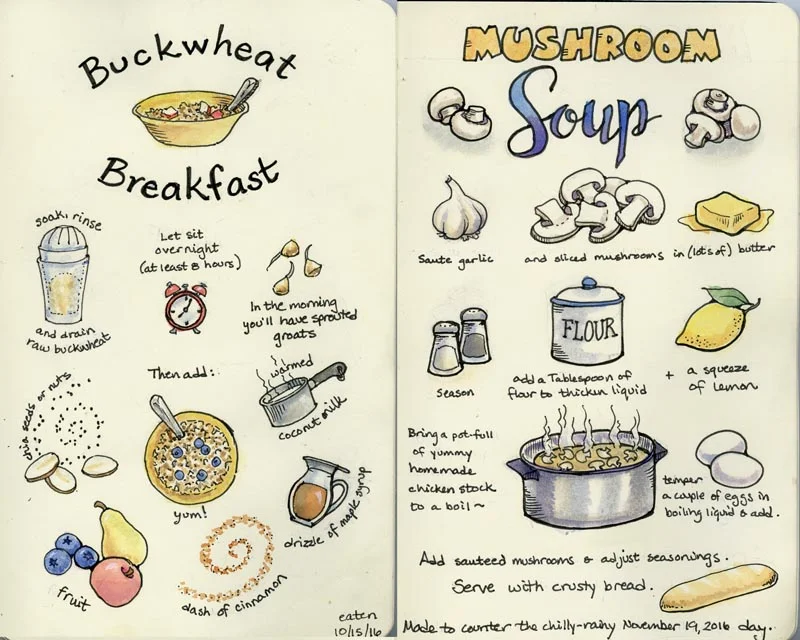 Buckwheat
Breakfast
soak, rinse
and drain
raw buckwheat
Let sit
overnight
(at least 8 hours)
In the morning
you'll have sprouted
groats
chia seeds or nuts
Then add:
yum!
warmed
coconut milk
drizzle of maple syrup
fruit
dash of cinnamon
eaten
10/15/16
MUSHROOM
Soup
Saute garlic
and sliced mushrooms
in (lots of) butter
season
FLOUR
add a Tablespoon of
flour to thicken liquid
+ a squeeze
of lemon
Bring a pot-full
of yummy
homemade
chicken stock
to a boil~
temper
a couple of eggs in
boiling liquid & add.
Add sauteed mushrooms & adjust seasonings.
Serve with crusty bread.
Made to counter the chilly-rainy November 19, 2016 day.